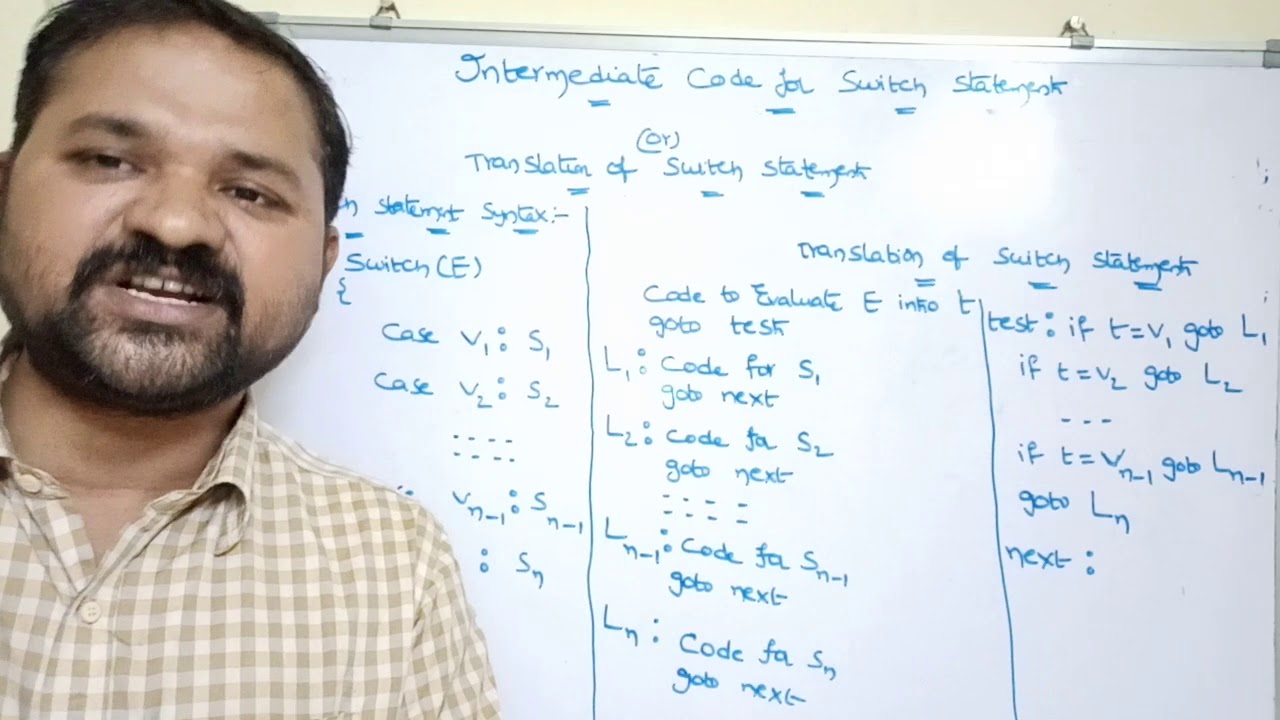 Intermediate Code for Switch statement
(or)
Translation of Switch statement
statement Syntax:-
Switch(E)
{
Case V₁ : S₁
Case V₂ : S₂
- - - -
- - - -
Vₙ₋₁ : Sₙ₋₁
: Sₙ
Translation of Switch statement
Code to Evaluate E into t
goto test
L₁ : Code for S₁
goto next
L₂ : Code for S₂
goto next
- - - -
- - - -
Lₙ₋₁ : Code for Sₙ₋₁
goto next
Lₙ : Code for Sₙ
goto next
test : if t=V₁ goto L₁
if t=V₂ goto L₂
- - -
if t=Vₙ₋₁ goto Lₙ₋₁
goto Lₙ
next :